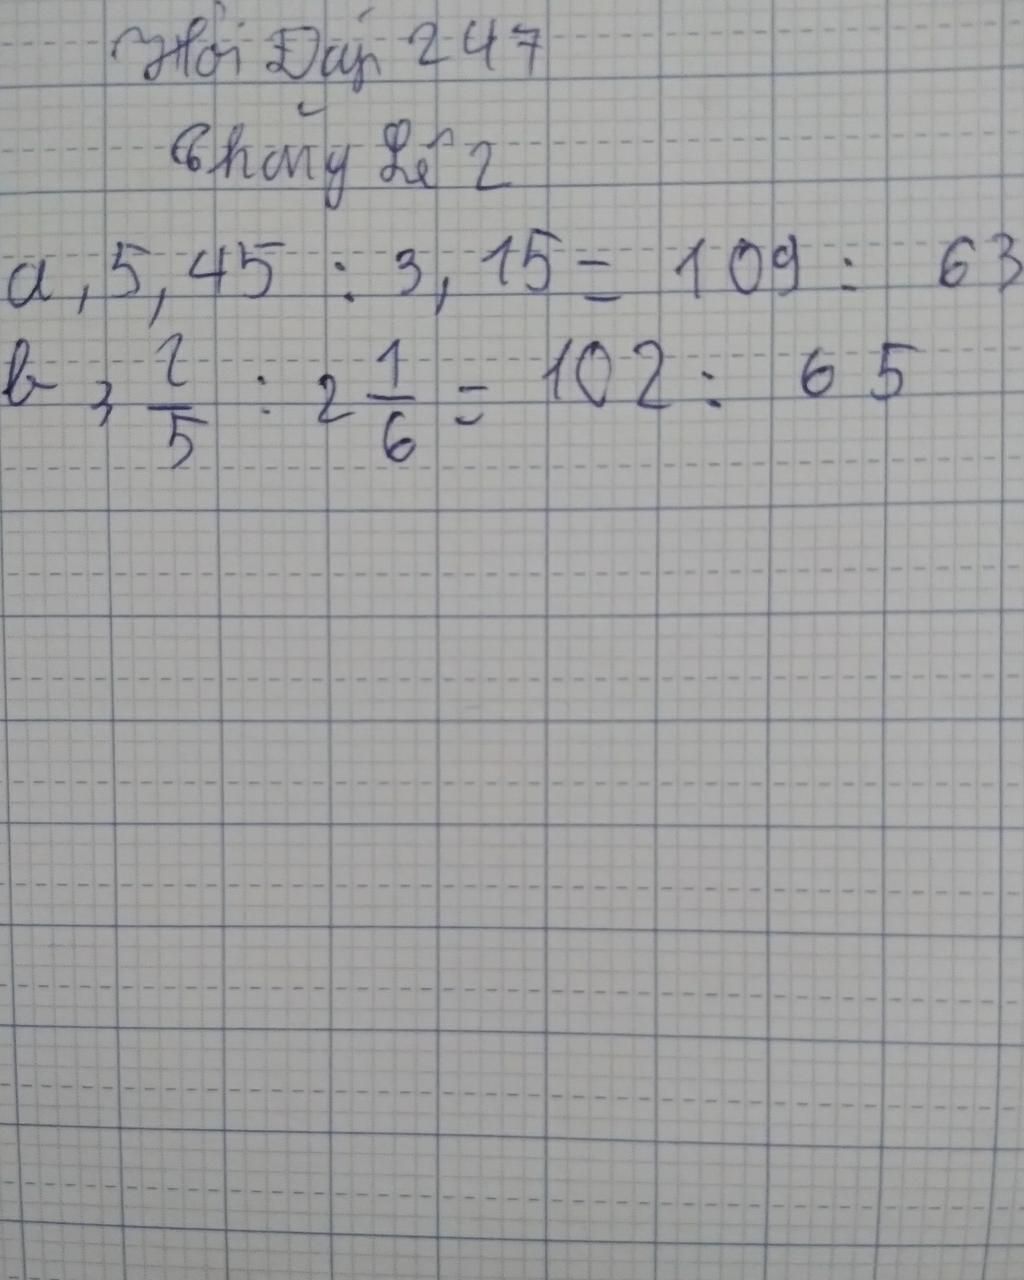 Hỏi Đáp 247
Thẳng Lê 2
a, 5,45 : 3,15 = 109 : 63
b 3 2/5 : 2 1/6 = 102 : 65